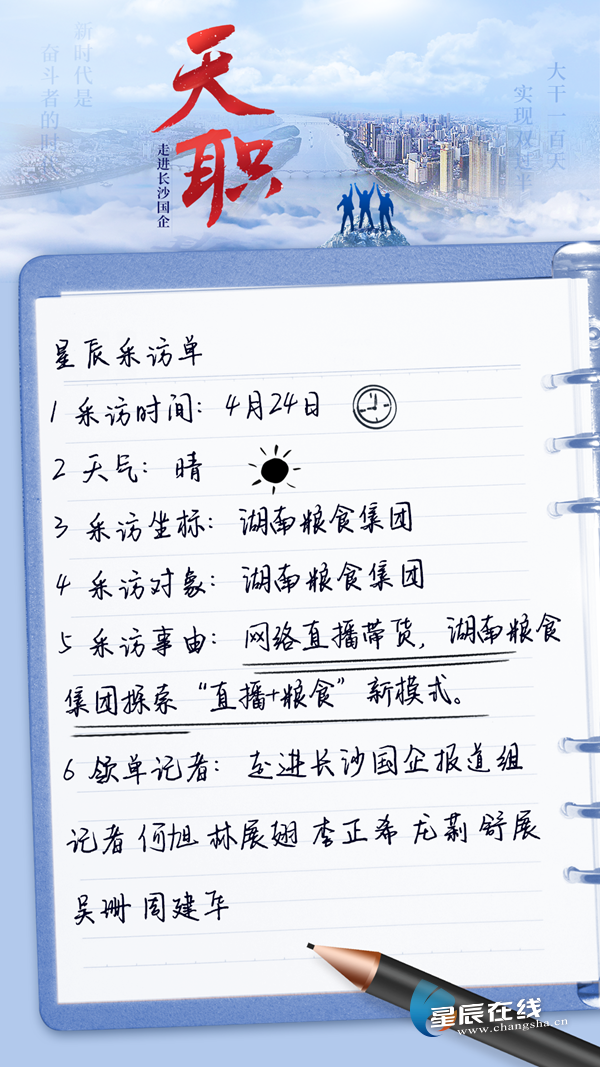 新时代是
奋斗者的时代
天职
走进长沙国企
大干一百天
实现双过半
星辰采访单
1 采访时间：4月24日
2 天气：晴
3 采访坐标：湖南粮食集团
4 采访对象：湖南粮食集团
5 采访事由：网络直播带货，湖南粮食
集团探索“直播+粮食”新模式。
6 领单记者：走进长沙国企报道组
记者 何旭 林展翅 李正希 龙莉 舒展
吴珊 周建华
星辰在线
www.changsha.cn